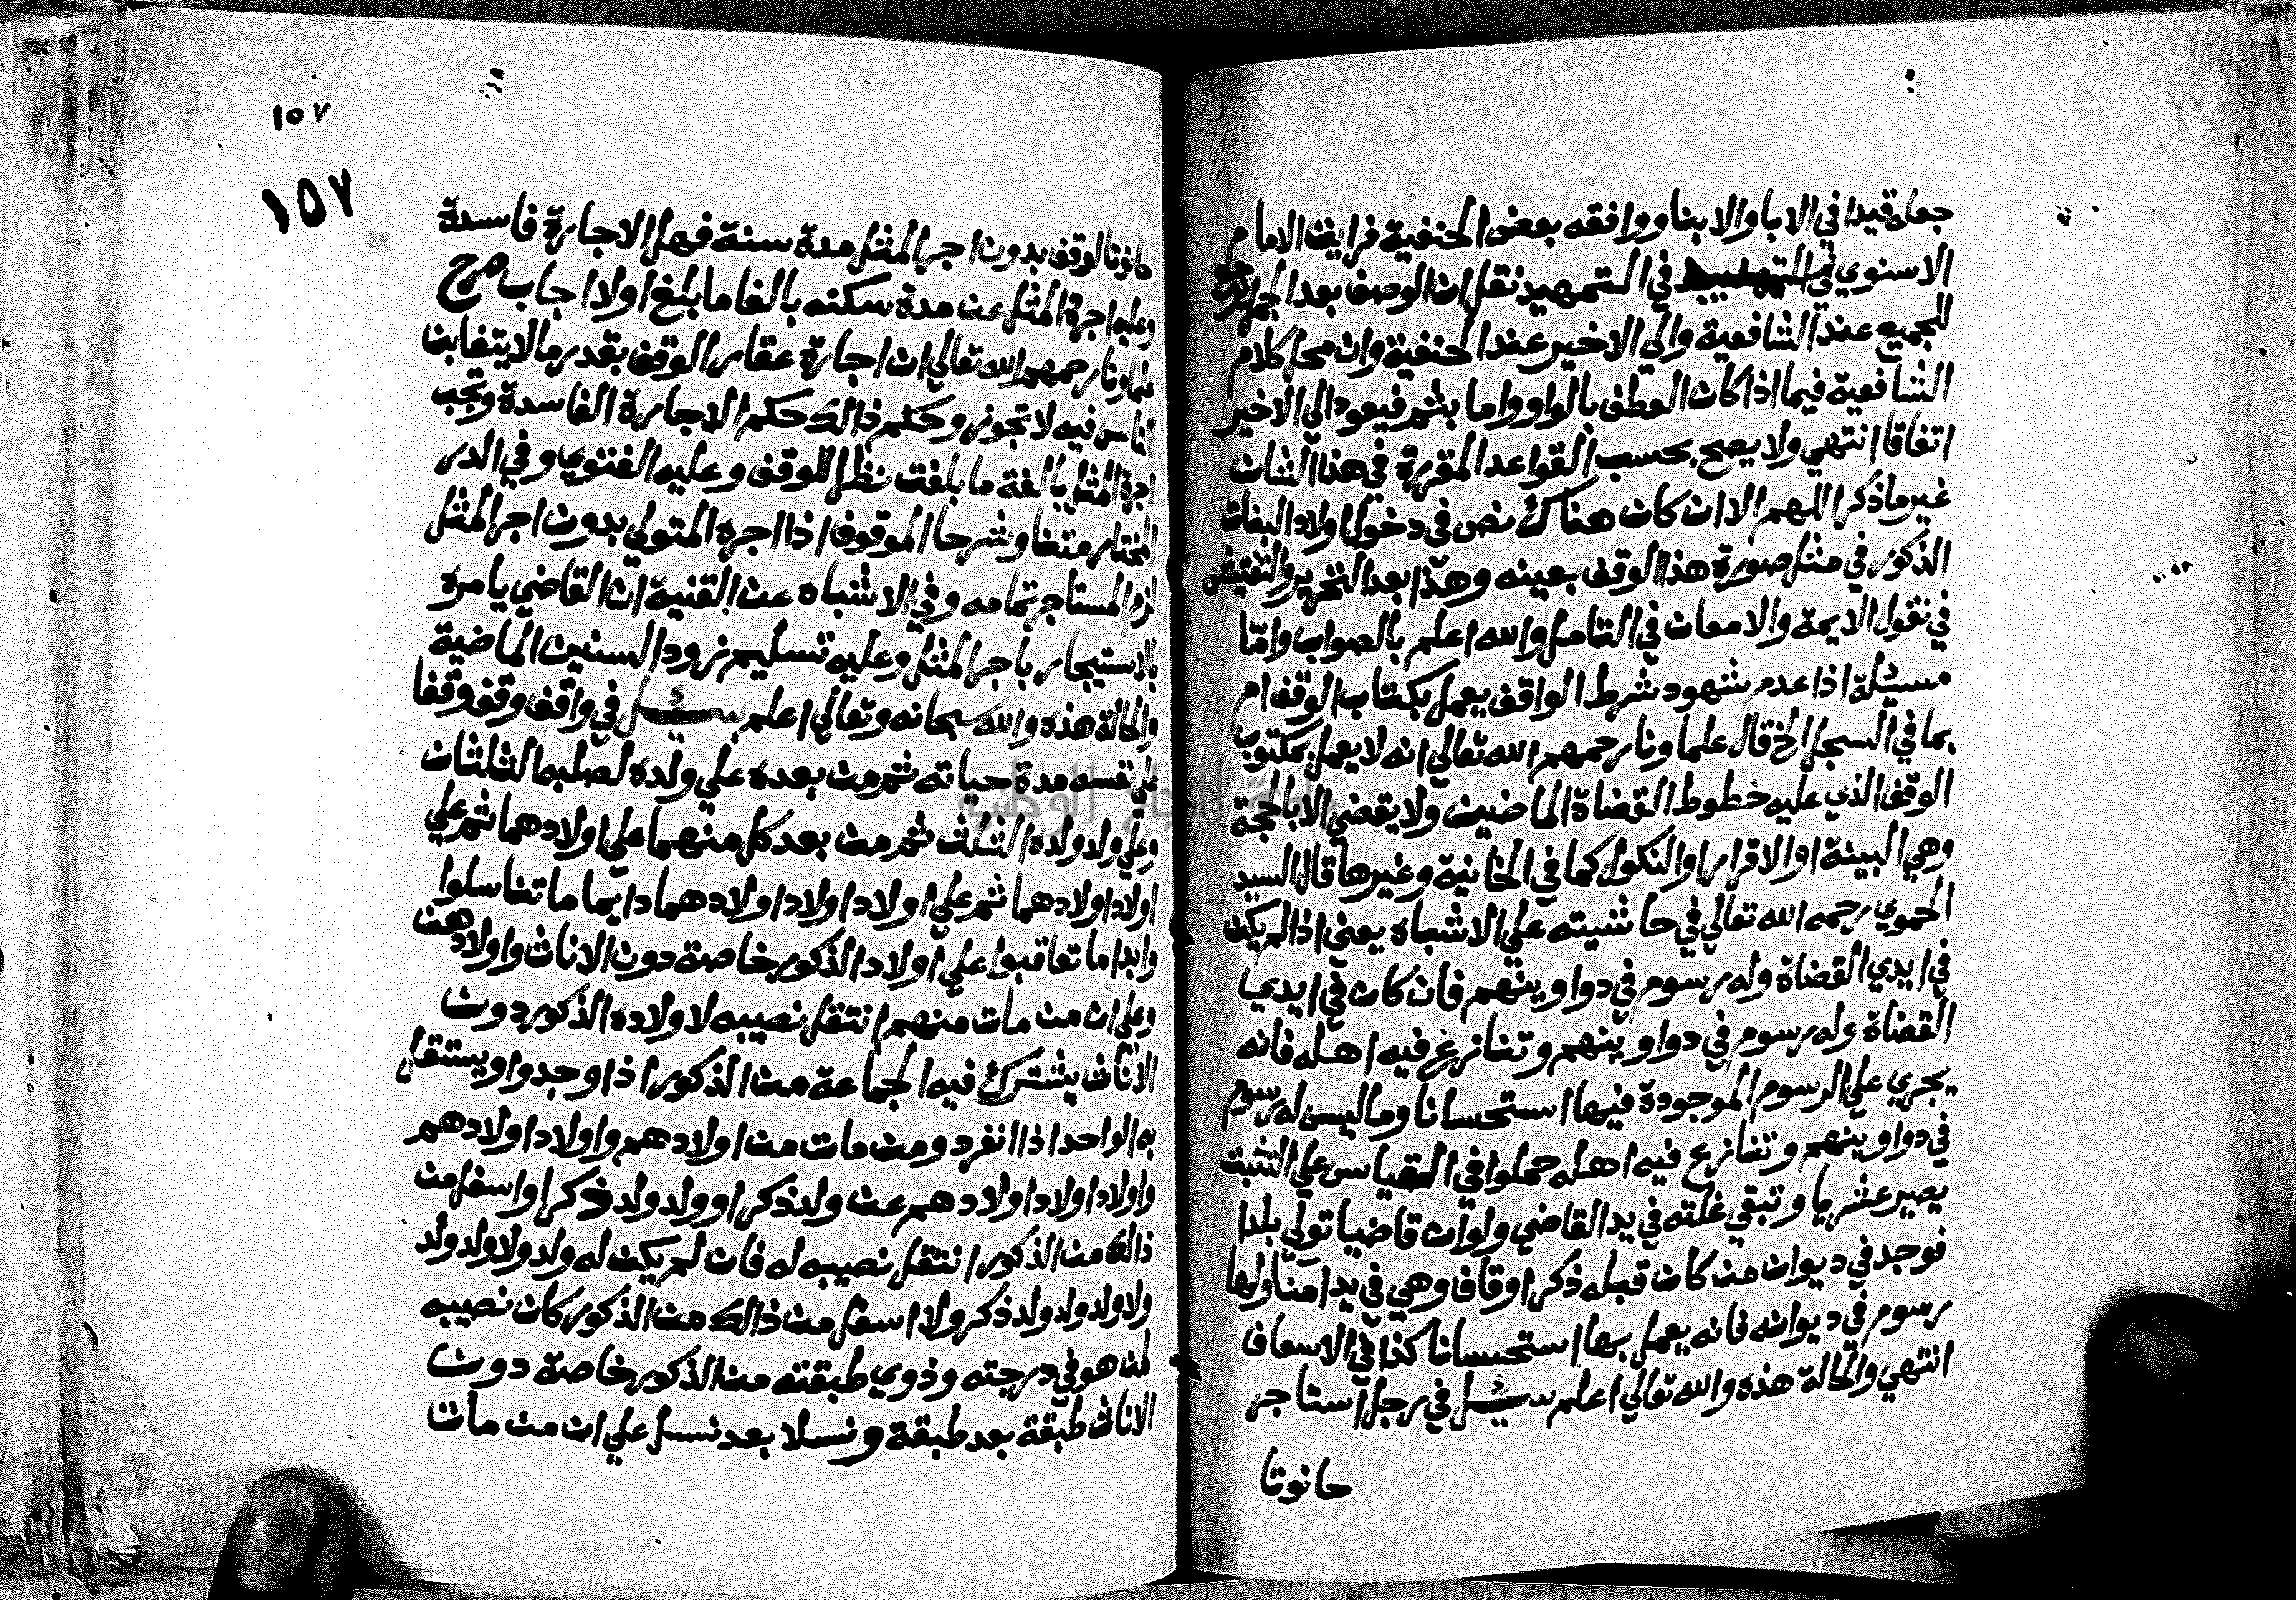 جعله قيدا في الابا والابنا ووافقه بعض الحنفية فرايت الامام
الاسنوي في التمهيد نقل ان الوصف بعد الجمل يرجع
للجميع عند الشافعية والي الاخير عند الحنفية وان محل كلام
الشافعية فيما اذا كان العطف بالواو واما بثم فيعود الي الاخير
اتفاقا انتهي ولا يصح بحسب القواعد المقررة في هذا الشان
غير ما ذكر اللهم الا ان كان هناك نص في دخول اولاد البنات
الذكور في مثل صورة هذا الوقف بعينه وهذا بعد التحرير والتفتيش
في نقول الايمة والامعان في التامل والله اعلم بالصواب وامّا
مسئلة اذا عدم شهود شرط الواقف يعمل بكتاب الوقف ام
بما في السجل الخ قال علماونا رحمهم الله تعالي انه لا يعمل بمكتوب
الوقف الذي عليه خطوط القضاة الماضين ولا يقضي الا بالحجة
وهي البينة او الاقرار او النكول كما في الخانية وغيرها قال السيد
الحموي رحمه الله تعالي في حاشيته علي الاشباه يعني اذا لم يكن
في ايدي القضاة وله رسوم في دواوينهم فان كان في ايدي
القضاة وله رسوم في دواوينهم وتنازع فيه اهله فانه
يجري علي الرسوم الموجودة فيها استحسانا وما ليس له رسوم
في دواوينهم وتنازع فيه اهله حملوا في القياس علي التثبت
وتبقي غلته في يد القاضي ولو ان قاضيا تولي بلدا
فوجد في ديوان من كان قبله ذكر اوقاف وهي في يد امنا ولها
رسوم في ديوانه فانه يعمل بها استحسانا كذا في الاسعاف
انتهي والحالة هذه والله تعالي اعلم سئل في رجل استاجر
حانوتا
١٥٧
١٥٧
حانوتا لوقف بدون اجر المثل مدة سنة فهل الاجارة فاسدة
وعليه اجرة المثل عن مدة سكنه بالغا ما بلغ اولا اجاب صرح
علماونا رحمهم الله تعالي ان اجارة عقار الوقف بقدر ما لا يتغابن
الناس فيه لا تجوز وحكم ذالك حكم الاجارة الفاسدة وتجب
اجرة المثل بالغة ما بلغت نظرا للوقف وعليه الفتوي وفي الدر
المختار متنا وشرحا الموقوف اذا اجره المتولي بدون اجر المثل
لزم المستاجر تمامه وفي الاشباه عن القنية ان القاضي يامره
بالاستيجار باجر المثل وعليه تسليم زود السنين الماضية
والحالة هذه والله سبحانه وتعالي اعلم سئل في واقف وقف وقفا
علي نفسه مدة حياته ثم من بعده علي ولده لصلبه الثلثان
وعلي ولد ولده الثلث ثم من بعد كل منهما علي اولادهما ثم علي
اولاد اولادهما ثم علي اولاد اولاد اولادهما دايما ما تناسلوا
وابدا ما تعاقبوا علي اولاد الذكور خاصة دون الاناث واولادهن
وعلي ان من مات منهم انتقل نصيبه لاولاده الذكور دون
الاناث يشترك فيه الجماعة من الذكور اذا وجدوا ويستقل
به الواحد اذا انفرد ومن مات من اولادهم واولاد اولادهم
واولاد اولاد اولادهم عن ولد ذكر او ولد ولد ذكر او اسفل من
ذالك من الذكور انتقل نصيبه له فان لم يكن له ولد ولا ولد ولد
ولا ولد ولد ولد ذكر ولا اسفل من ذالك من الذكور كان نصيبه
لمن هو في درجته وذوي طبقته من الذكور خاصة دون
الاناث طبقة بعد طبقة ونسلا بعد نسل علي ان من مات